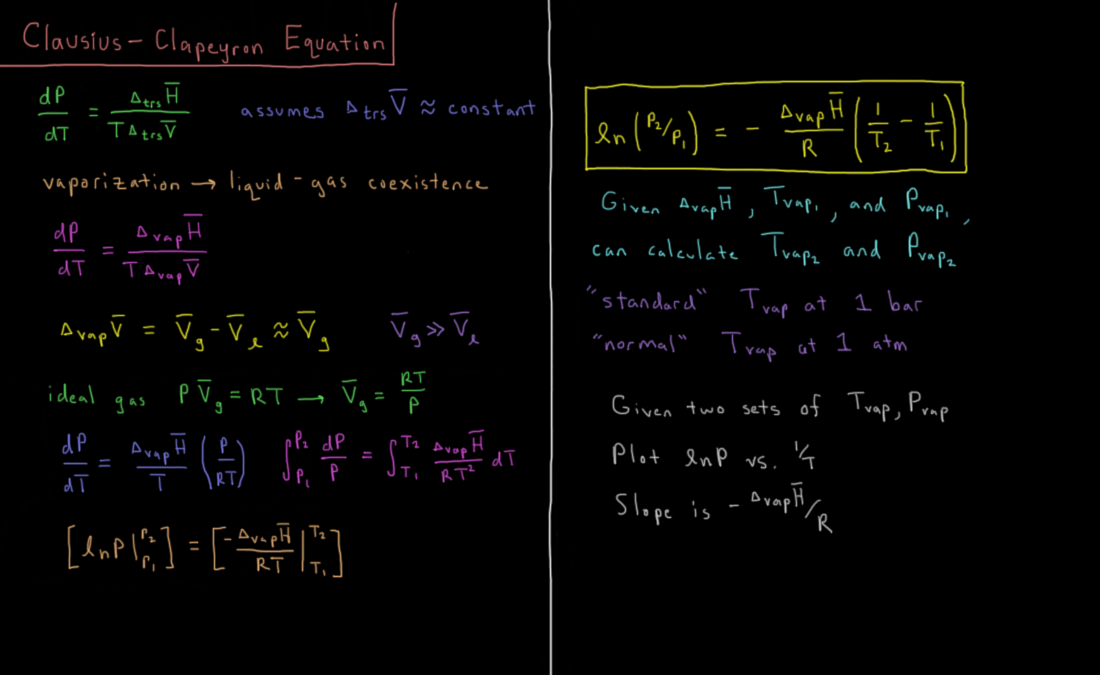 Clausius-Clapeyron Equation
dP/dT = Δtrs H̅ / T Δtrs V̅ assumes Δtrs V̅ ≈ constant
vaporization → liquid-gas coexistence
dP/dT = Δvap H̅ / T Δvap V̅
Δvap V̅ = V̅g - V̅ℓ ≈ V̅g V̅g >> V̅ℓ
ideal gas P V̅g = RT → V̅g = RT/P
dP/dT = Δvap H̅ / T (P/RT) ∫_P₁^P₂ dP/P = ∫_T₁^T₂ Δvap H̅ / RT² dT
[ln P |_P₁^P₂] = [-Δvap H̅ / RT |_T₁^T₂]
ln(P₂/P₁) = - Δvap H̅ / R (1/T₂ - 1/T₁)
Given Δvap H̅, Tvap₁, and Pvap₁,
can calculate Tvap₂ and Pvap₂
"standard" Tvap at 1 bar
"normal" Tvap at 1 atm
Given two sets of Tvap, Pvap
Plot ln P vs. 1/T
Slope is - Δvap H̅ / R